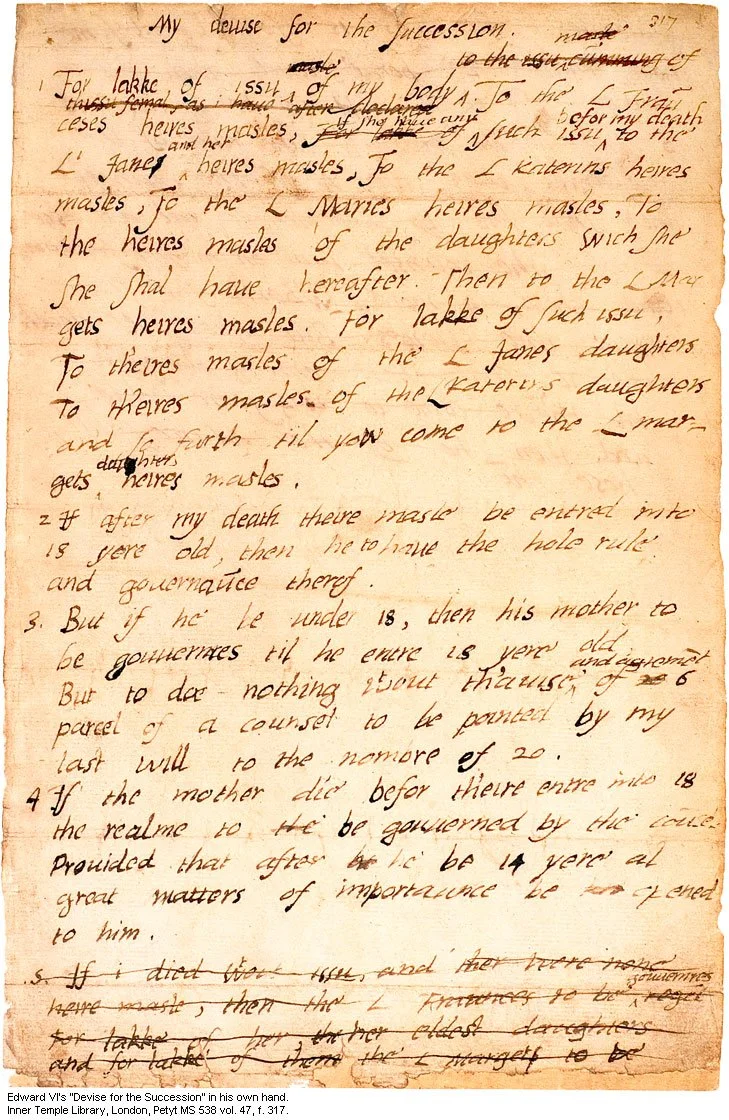 My deuise for the Succession.
317
masle
to the issu cumming of
masle
1 For lakke of issu of my body. To the L Frau
thissu femal, as i haue after declared
if she haue any
befor my death
ceses heires masles, For lakke of such issu to the
and her
L' Janes heires masles, To the L Katerins heires
masles, To the L Maries heires masles, To
the heires masles of the daughters wich she
she shal haue hereafter. Then to the L Mar
gets heires masles. For lakke of such issu,
To th'eires masles of the L Janes daughters
To th'eires masles of the L Katerins daughters
and so furth til yow come to the L mar-
daughters
gets heires masles.
2 If after my death theire masle be entred into
18 yere old, then he to have the hole rule
and gouernauce therof.
3. But if he be under 18, then his mother to
be gouuernres til he entre 18 yere old
and agremēt
But to doe nothing wout th'auise of 6
parcel of a counsel to be pointed by my
last will to the nomore of 20.
4 If the mother die befor th'eire entre into 18
the realme to the be gouuerned by the coūsel
Prouided that after he be 14 yere al
great matters of importaunce be opened
to him.
5. If i died wout issu, and ther were none
gouuernres
heire masle, then the L Fraunces to be reget
For lakke of her, the her eldest daughters
and for lakke of them the L Margets to be
Edward VI's "Devise for the Succession" in his own hand.
Inner Temple Library, London, Petyt MS 538 vol. 47, f. 317.